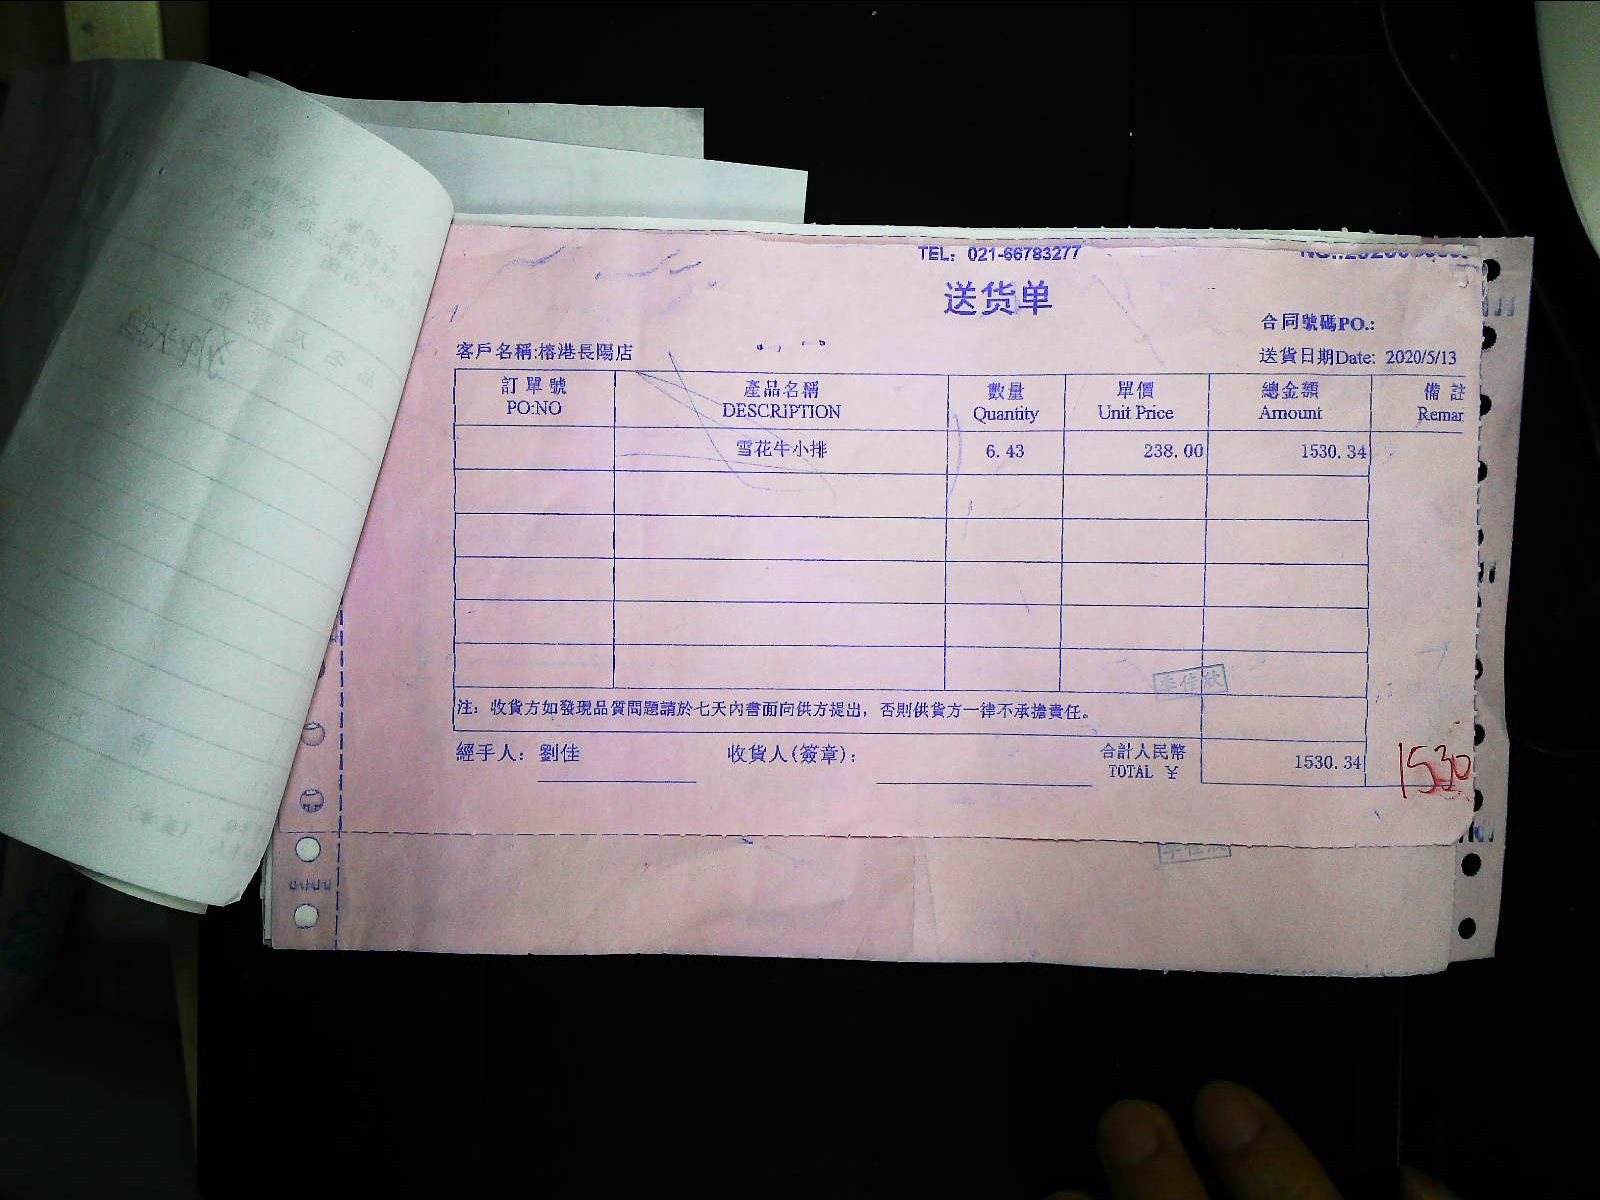 TEL: 021-66783277
送货单
合同號碼PO.:
客戶名稱:榕港長陽店
送貨日期Date: 2020/5/13
訂單號 產品名稱 數量 單價 總金額 備註
PO:NO DESCRIPTION Quantity Unit Price Amount Remar
雪花牛小排 6.43 238.00 1530.34
李佳欣
注: 收貨方如發現品質問題請於七天內書面向供方提出, 否則供貨方一律不承擔責任。
經手人: 劉佳 收貨人(簽章): 合計人民幣 1530.34 1530
TOTAL ¥
李佳欣